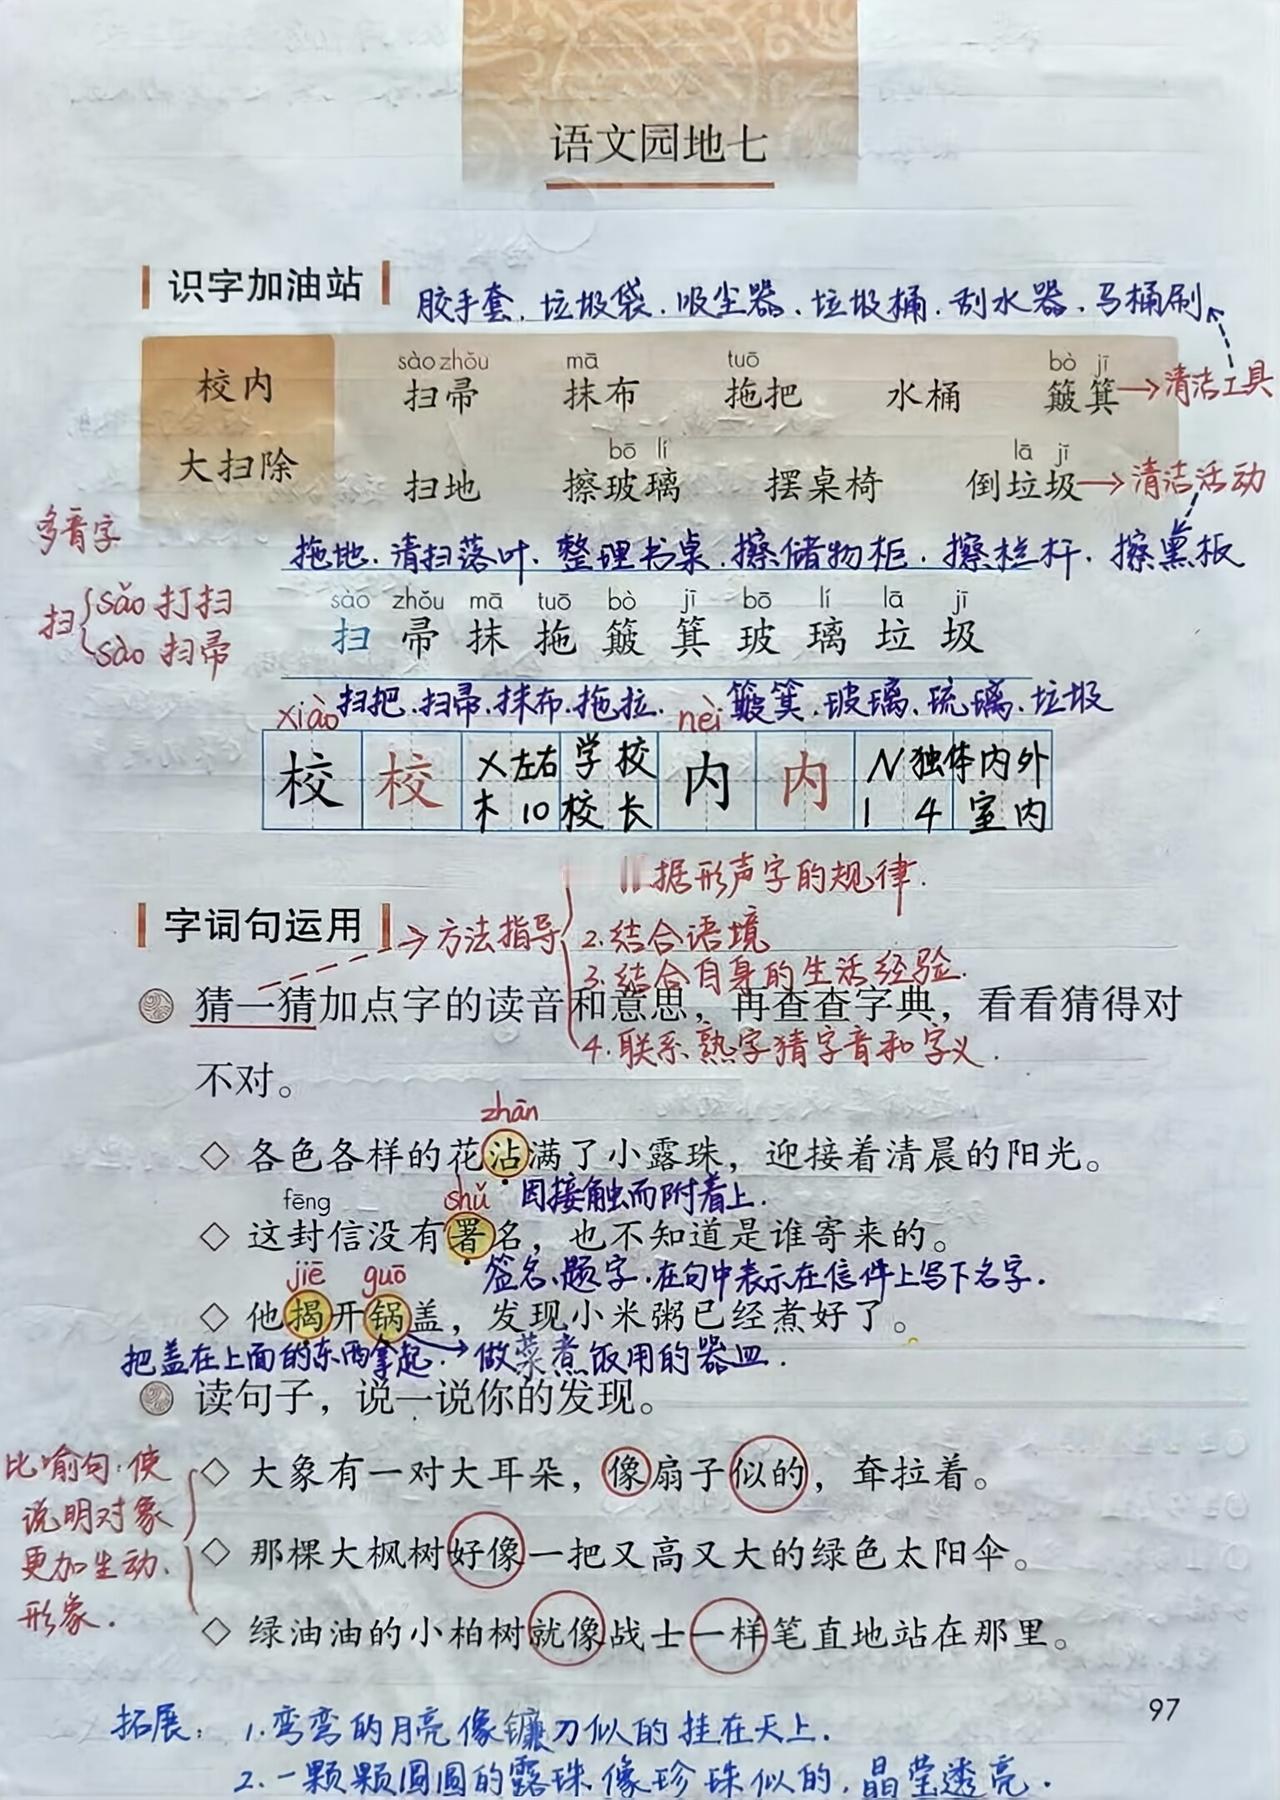 语文园地七
识字加油站
胶手套、垃圾袋、吸尘器、垃圾桶、刮水器、马桶刷
sào zhǒu mā tuō bò jī
校内 扫帚 抹布 拖把 水桶 簸箕→清洁工具
bō lí lā jī
大扫除 扫地 擦玻璃 摆桌椅 倒垃圾→清洁活动
多音字
拖地、清扫落叶、整理书桌、擦储物柜、擦栏杆、擦黑板
扫 sǎo 打扫
sào 扫帚
sào zhǒu mā tuō bò jī bō lí lā jī
扫 帚 抹 拖 簸 箕 玻 璃 垃 圾
xiào 扫把、扫帚、抹布、拖拉、nèi 簸箕、玻璃、琉璃、垃圾
校 校 X 左右 学校 内 内 N 独体 内外
木 10 校长 1 4 室内
据形声字的规律.
字词句运用→方法指导
2.结合语境
3.结合自身的生活经验.
猜一猜加点字的读音和意思，再查查字典，看看猜得对
4.联系熟字猜字音和字义.
不对。
zhān
◇ 各色各样的花沾满了小露珠，迎接着清晨的阳光。
因接触而附着上.
fēng shǔ
◇ 这封信没有署名，也不知道是谁寄来的。
签名、题字.在句中表示在信件上写下名字.
jiē guō
◇ 他揭开锅盖，发现小米粥已经煮好了。
把盖在上面的东西拿起.→做菜煮饭用的器皿.
读句子，说一说你的发现。
比喻句:使
说明对象
更加生动、
形象.
◇ 大象有一对大耳朵，像扇子似的，耷拉着。
◇ 那棵大枫树好像一把又高又大的绿色太阳伞。
◇ 绿油油的小柏树就像战士一样笔直地站在那里。
97
拓展: 1.弯弯的月亮像镰刀似的挂在天上.
2.一颗颗圆圆的露珠像珍珠似的,晶莹透亮.